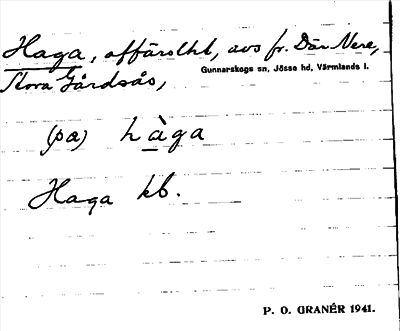 Haga, affärslht, avs fr. Där Nere,
Gunnarskogs sn, Jösse hd, Värmlands l.
Stora Gårdsås,
(pa) hàga
Haga kb.
P. O. GRANÉR 1941.